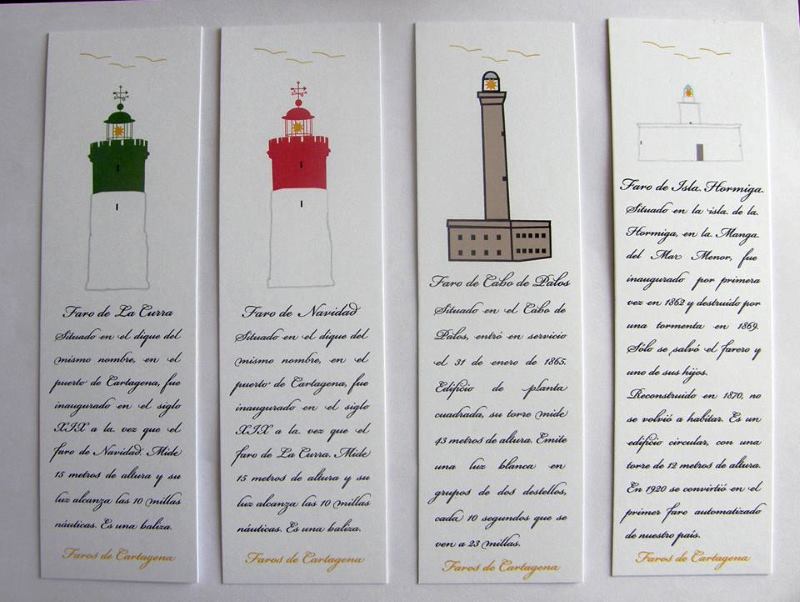 Faro de La Curra
Situado en el dique del
mismo nombre, en el
puerto de Cartagena, fue
inaugurado en el siglo
XIX a la vez que el
faro de Navidad. Mide
15 metros de altura y su
luz alcanza las 10 millas
náuticas. Es una baliza.
Faros de Cartagena
Faro de Navidad
Situado en el dique del
mismo nombre, en el
puerto de Cartagena, fue
inaugurado en el siglo
XIX a la vez que el
faro de La Curra. Mide
15 metros de altura y su
luz alcanza las 10 millas
náuticas. Es una baliza.
Faros de Cartagena
Faro de Cabo de Palos
Situado en el Cabo de
Palos, entró en servicio
el 31 de enero de 1865.
Edificio de planta
cuadrada, su torre mide
43 metros de altura. Emite
una luz blanca en
grupos de dos destellos,
cada 10 segundos que se
ven a 23 millas.
Faros de Cartagena
Faro de Isla Hormiga.
Situado en la isla de la
Hormiga, en la Manga
del Mar Menor, fue
inaugurado por primera
vez en 1862 y destruido por
una tormenta en 1869.
Sólo se salvó el farero y
uno de sus hijos.
Reconstruido en 1870, no
se volvió a habitar. Es un
edificio circular, con una
torre de 12 metros de altura.
En 1920 se convirtió en el
primer faro automatizado
de nuestro país.
Faros de Cartagena